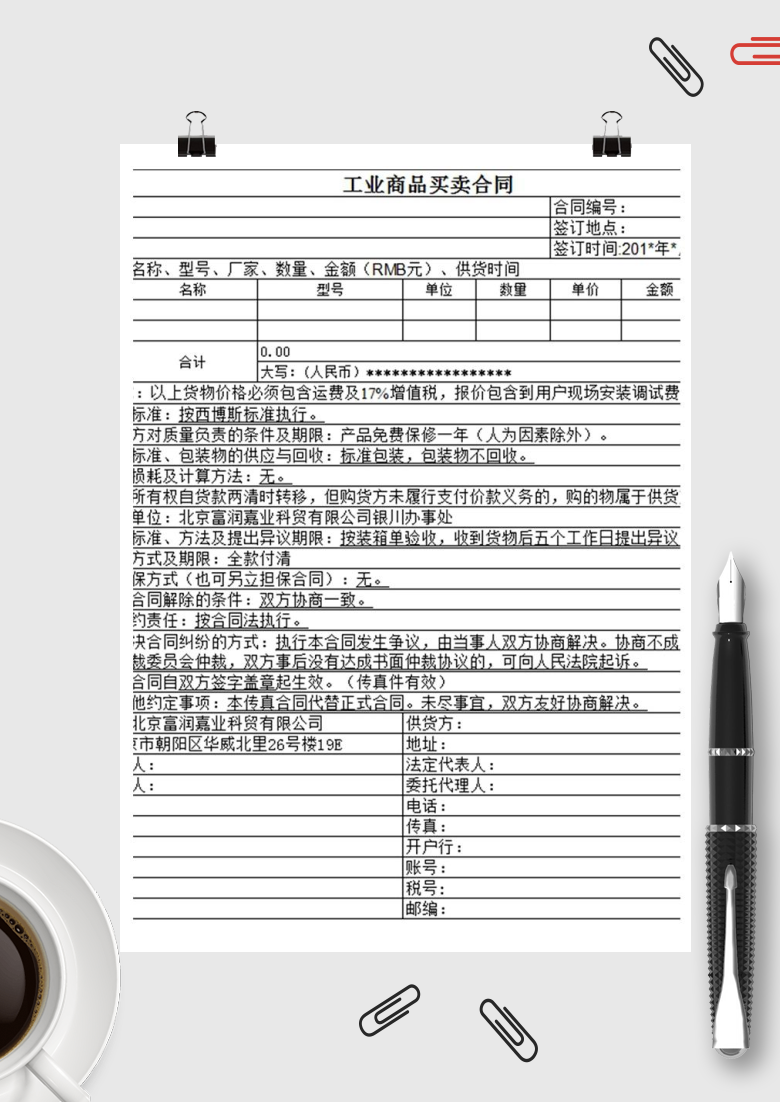 工业商品买卖合同
合同编号：
签订地点：
签订时间:201*年*
名称、型号、厂家、数量、金额（RMB元）、供货时间
名称 型号 单位 数量 单价 金额
合计
0.00
大写:（人民币）*****************
：以上货物价格必须包含运费及17%增值税，报价包含到用户现场安装调试费
标准：按西博斯标准执行。
方对质量负责的条件及期限：产品免费保修一年（人为因素除外）。
标准、包装物的供应与回收：标准包装，包装物不回收。
损耗及计算方法：无。
所有权自货款两清时转移，但购货方未履行支付价款义务的，购的物属于供货
单位：北京富润嘉业科贸有限公司银川办事处
标准、方法及提出异议期限：按装箱单验收，收到货物后五个工作日提出异议
方式及期限：全款付清
保方式（也可另立担保合同）：无。
合同解除的条件：双方协商一致。
约责任：按合同法执行。
决合同纠纷的方式：执行本合同发生争议，由当事人双方协商解决。协商不成
裁委员会仲裁，双方事后没有达成书面仲裁协议的，可向人民法院起诉。
合同自双方签字盖章起生效。（传真件有效）
他约定事项：本传真合同代替正式合同。未尽事宜，双方友好协商解决。
北京富润嘉业科贸有限公司 供货方：
市朝阳区华威北里26号楼19E 地址：
人： 法定代表人：
人： 委托代理人：
电话：
传真：
开户行：
账号：
税号：
邮编：